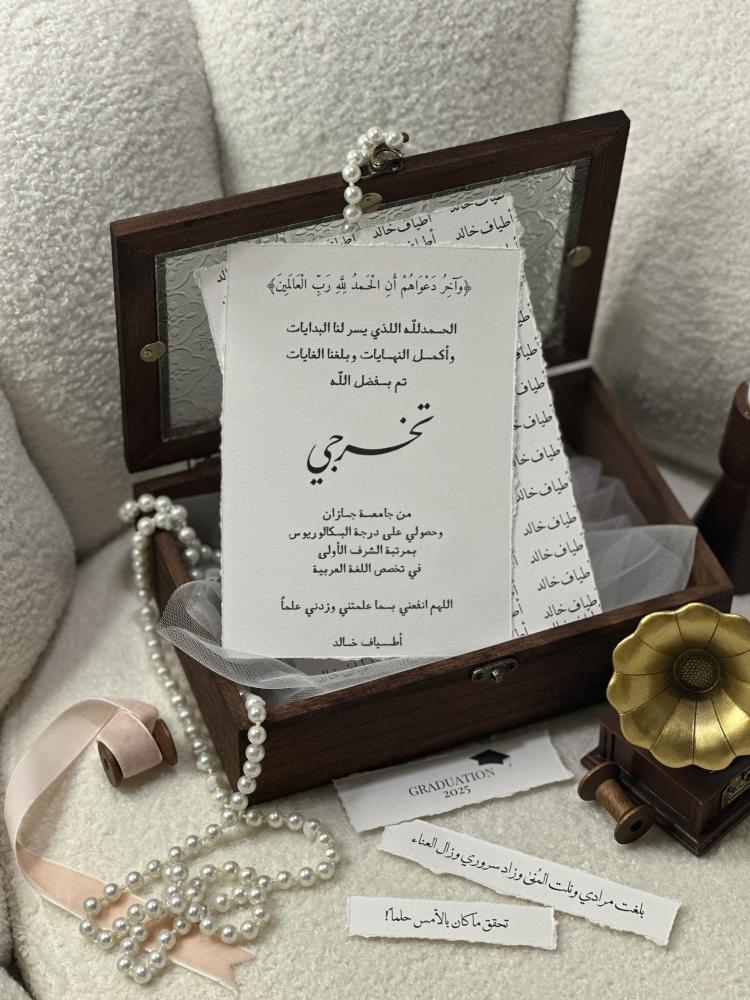 ﴿وَآخِرُ دَعْوَاهُمْ أَنِ الْحَمدُ لِلَّهِ رَبِّ الْعَالَمِينَ﴾
الحمدلله اللذي يسر لنا البدايات
وأكمل النهايات وبلغنا الغايات
تم بفضل الله
تخرجي
من جامعة جازان
وحصولي على درجة البكالوريوس
بمرتبة الشرف الأولى
في تخصص اللغة العربية
اللهم انفعني بما علمتني وزدني علماً
أطياف خالد
أطياف خالد
أطياف خالد
طياف خالد
طياف خالد
طياف خالد
طياف خالد
أطياف خالد
أطياف خالد
أطياف خالد
أطياف خالد
GRADUATION
2025
بلغت مرادي ونلت المُنىٰ وزاد سروري وزال العناء
تحقق ماكان بالأمس حلماً!